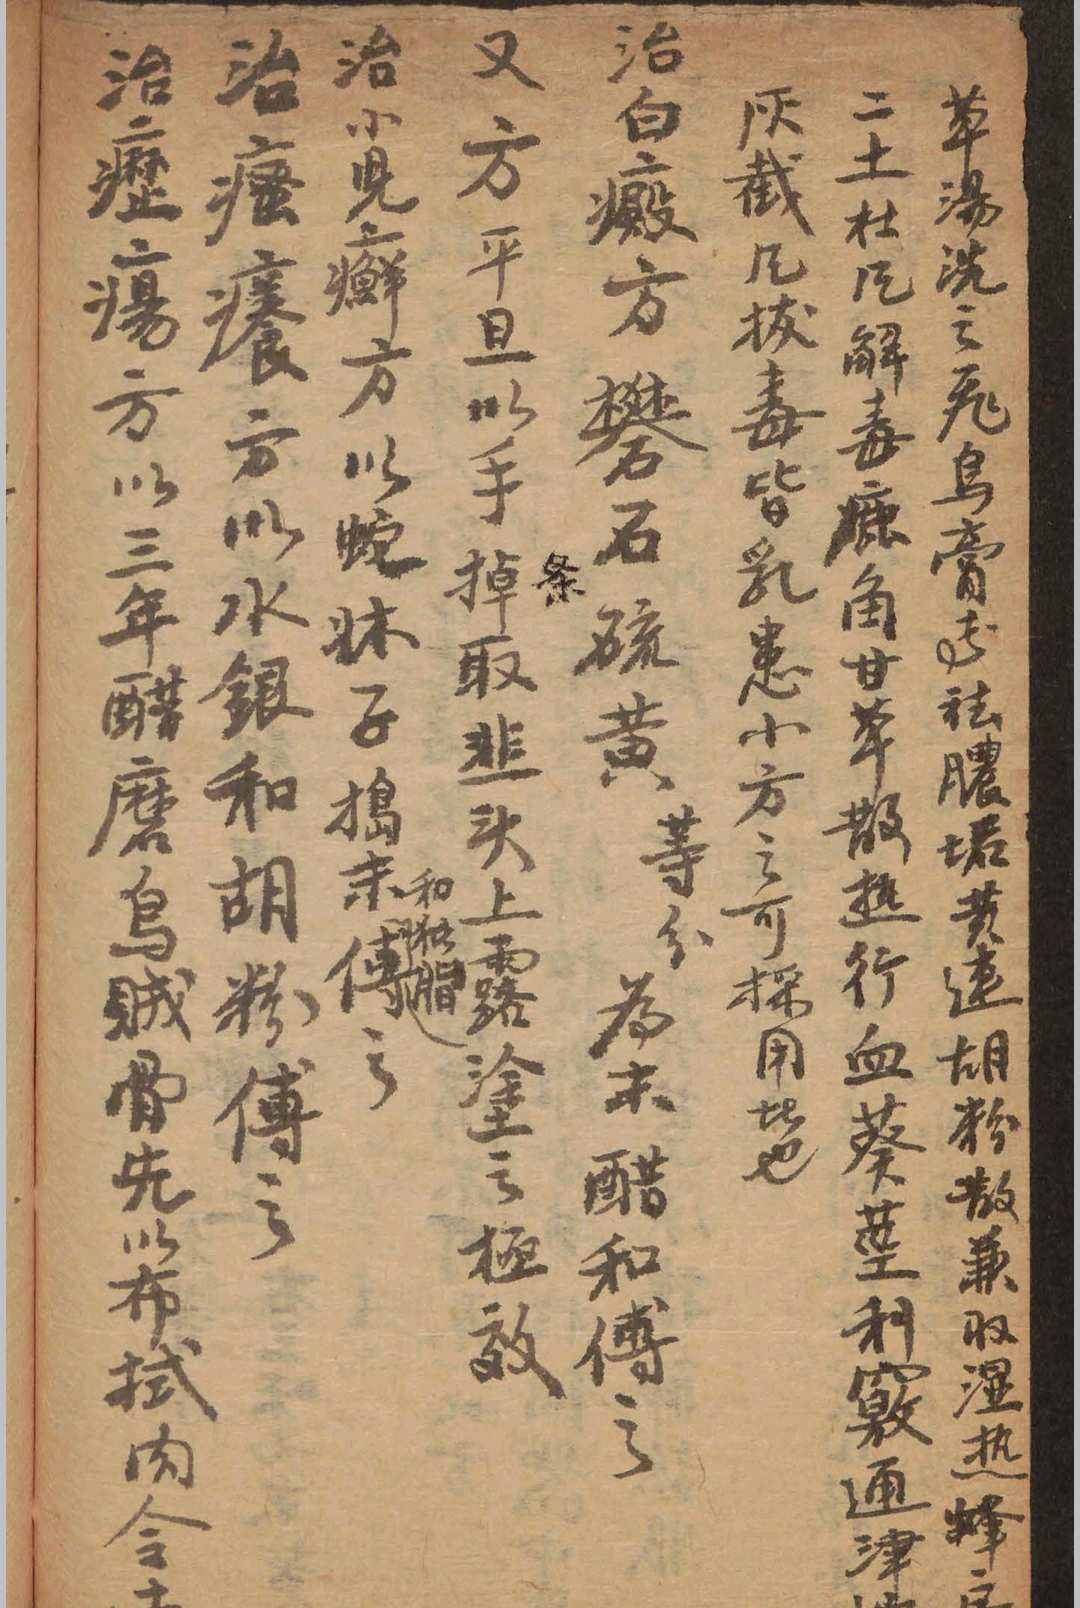 草湯洗之飛烏膏 祛膿 黄連胡粉散兼收湿热蜂房
二土杜 解毒鹿角甘草散热行血葵莖利竅通津
灰截 拔毒皆乳患小方之可採用 也
治白癜方礬石硫黄等分為末醋和傅之
又方平旦以手掉取韭头上露塗之極效
条
治小児癬方以蛇牀子搗末傅之
和猪脂
治瘙癢方以水銀和胡粉傅之
治癧瘍方以三年醋磨烏賊骨先以布拭肉令